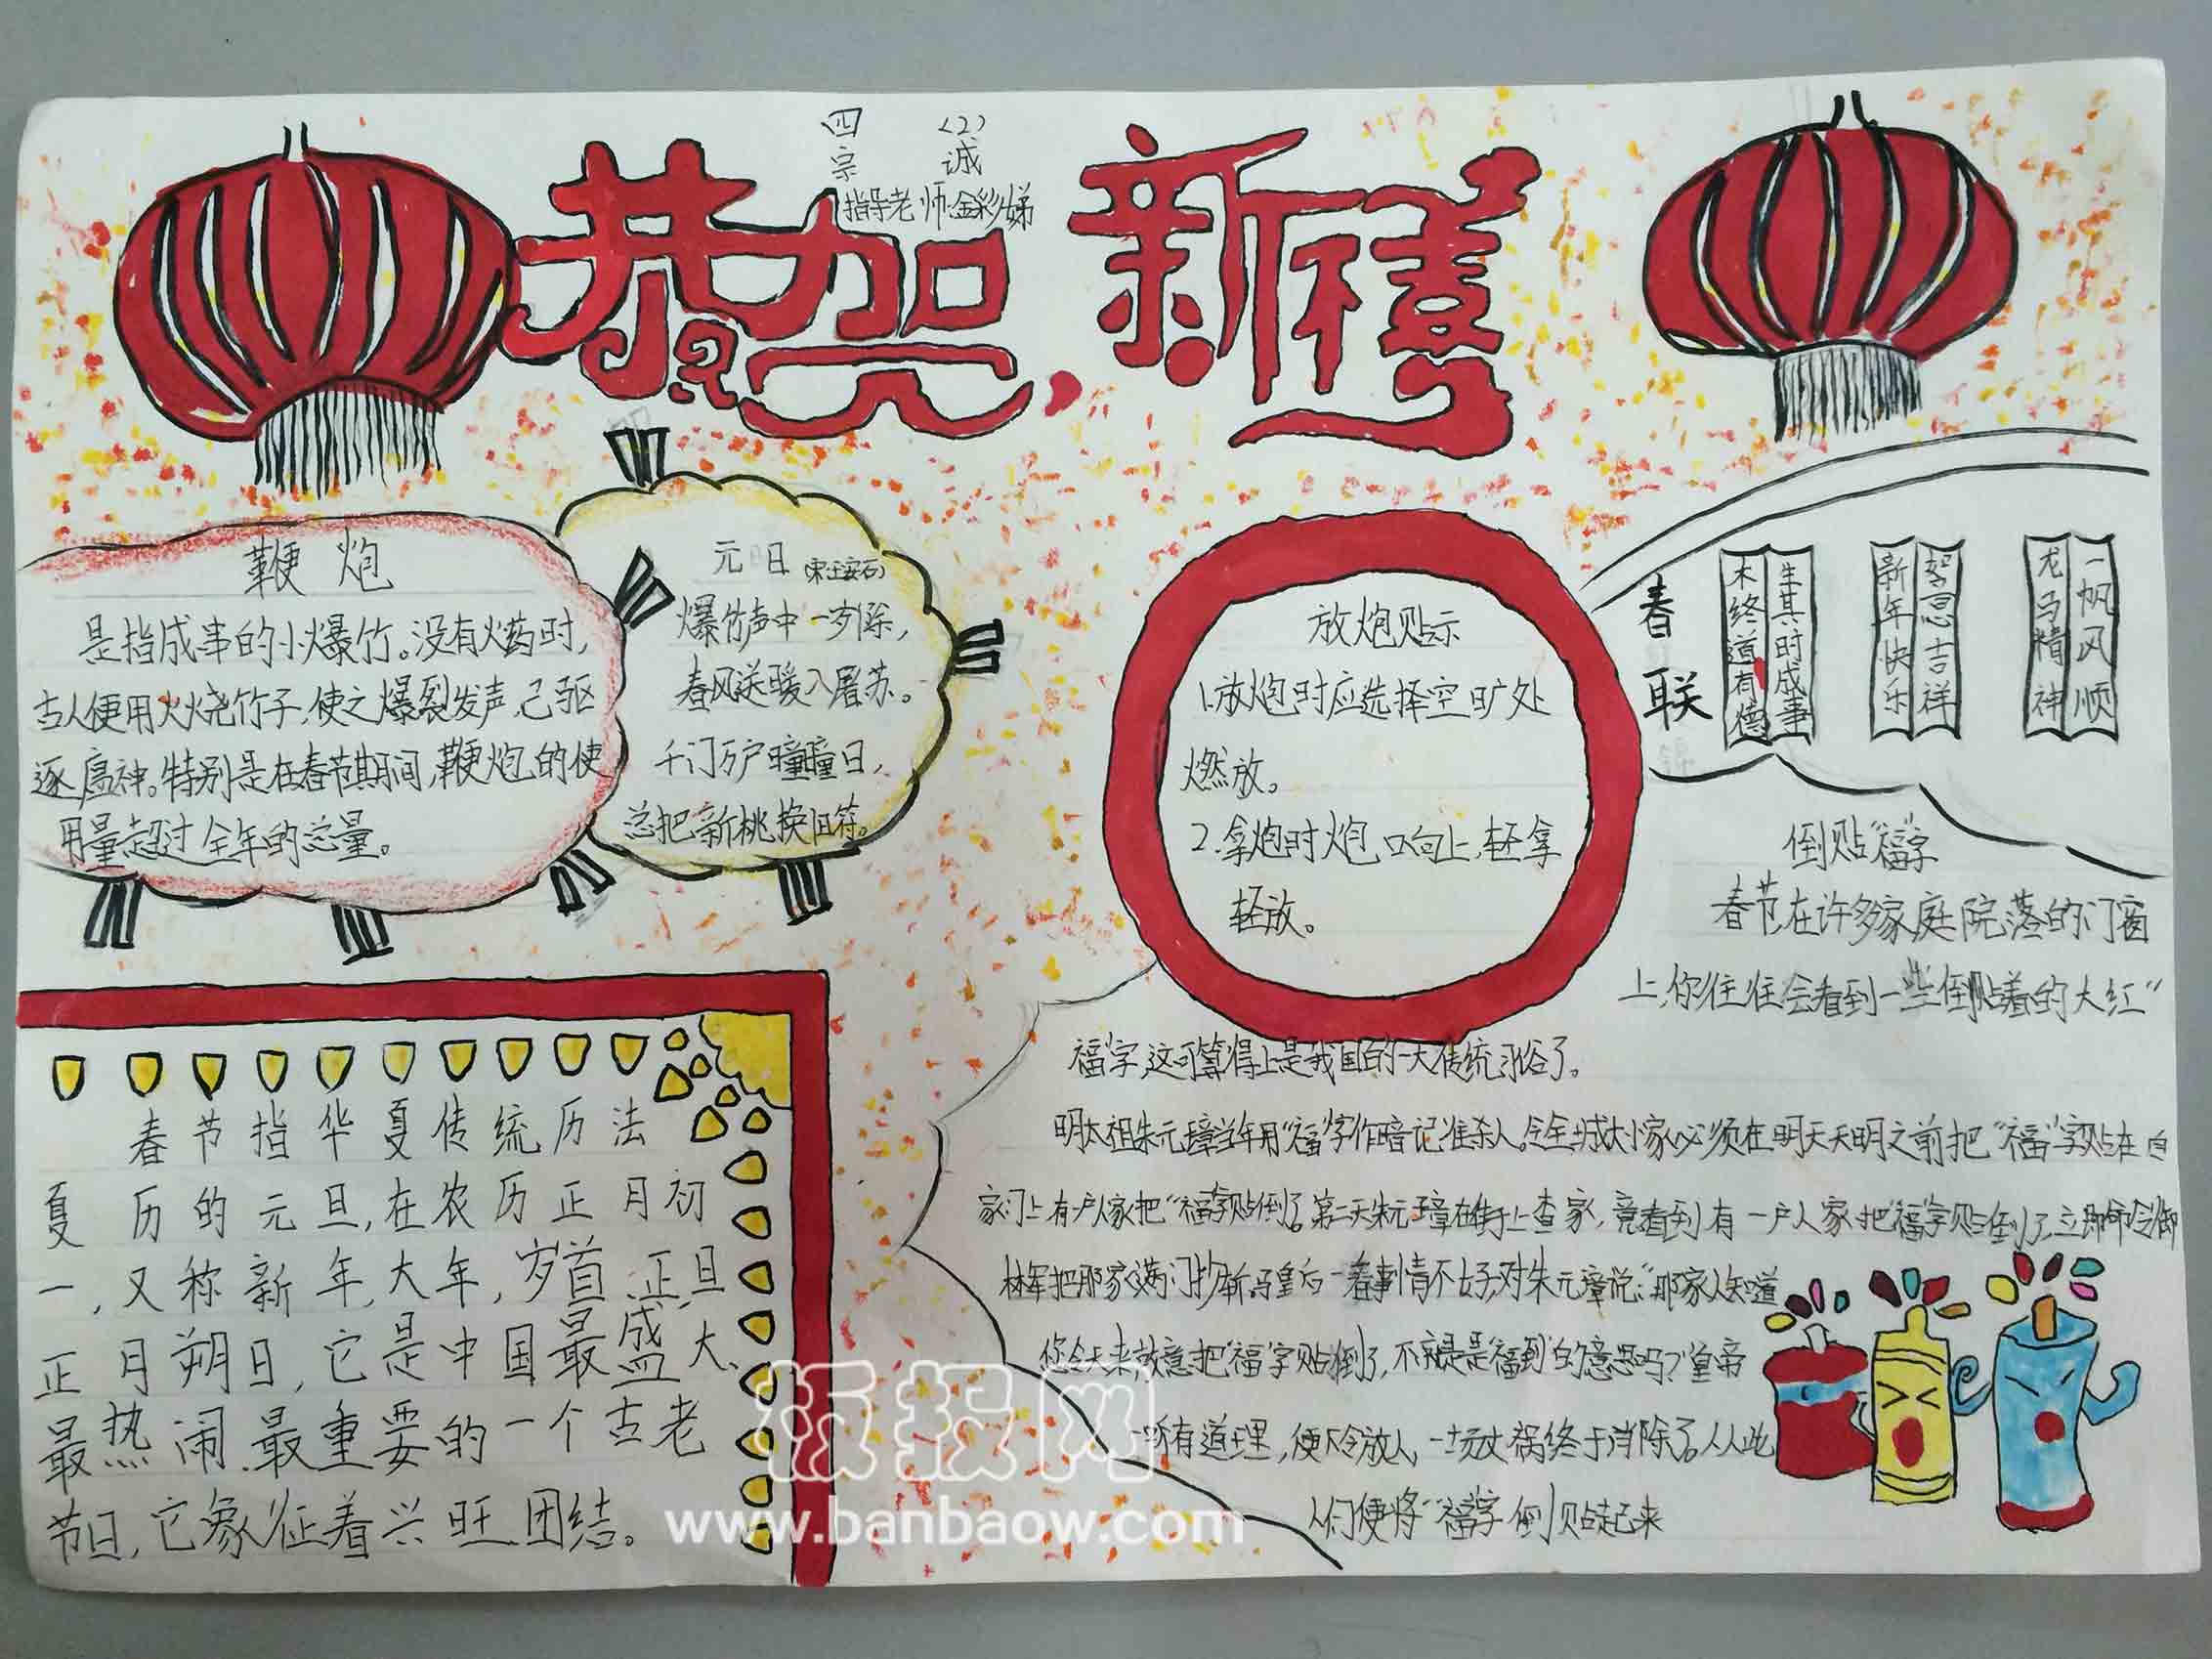 四 (2)
宗 诚
指导老师:金彩娣
恭贺新禧
鞭炮
是指成串的小爆竹。没有火药时,
古人便用火烧竹子,使之爆裂发声,已驱
逐瘟神。特别是在春节期间,鞭炮的使
用量超过全年的总量。
元日(宋王安石)
爆竹声中一岁除,
春风送暖入屠苏。
千门万户曈曈日,
总把新桃换旧符。
放炮贴示
1.放炮时应选择空旷处
燃放。
2.拿炮时炮口向上,轻拿
轻放。
春联
木终道有德
生其时成事
新年快乐
恕思吉祥
龙马精神
一帆风顺
倒贴“福”字
春节,在许多家庭院落的门窗
上,你往往会看到一些倒贴着的大红“
福”字,这可算得上是我国的一大传统习俗了。
明太祖朱元璋当年用“福”字作暗记准杀人。令全城大小家必须在明天天明之前把“福”字贴在自
家门上有一户人家把“福”字贴倒了。第二天朱元璋在街上查家,竟看到有一户人家把“福”字贴倒了,立即命令御
林军把那家满门抄斩。马皇后一看事情不好,对朱元璋说:“那家人知道
你今天来,故意把“福”字贴倒了,不就是是“福到”的意思吗?”皇帝
一听有道理,便下令放人,一场大祸终于消除了。从此
人们便将“福”字倒贴起来
春节指华夏传统历法
夏历的元旦,在农历正月初
一,又称新年,大年,岁首、正旦
正月朔日,它是中国最盛大、
最热闹、最重要的一个古老
节日,它象征着兴旺、团结。
板报网
www.banbaow.com